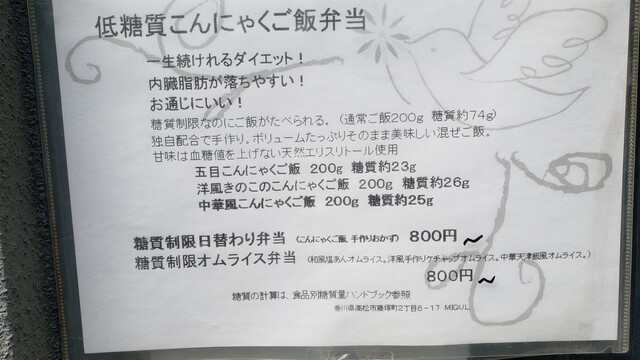 低糖質こんにゃくご飯弁当
一生続けれるダイエット！
内臓脂肪が落ちやすい！
お通じにいい！
糖質制限なのにご飯がたべられる。（通常ご飯200g 糖質約74g）
独自配合で手作り。ボリュームたっぷりそのまま美味しい混ぜご飯。
甘味は血糖値を上げない天然エリスリトール使用
五目こんにゃくご飯 200g 糖質約23g
洋風きのこのこんにゃくご飯 200g 糖質約26g
中華風こんにゃくご飯 200g 糖質約25g
糖質制限日替わり弁当 （こんにゃくご飯、手作りおかず） 800円～
糖質制限オムライス弁当 （和風塩あんオムライス。洋風手作りケチャップオムライス。中華天津飯風オムライス。）
800円～
糖質の計算は、食品別糖質量ハンドブック参照
香川県高松市藤塚町2丁目6－17 MIQUL